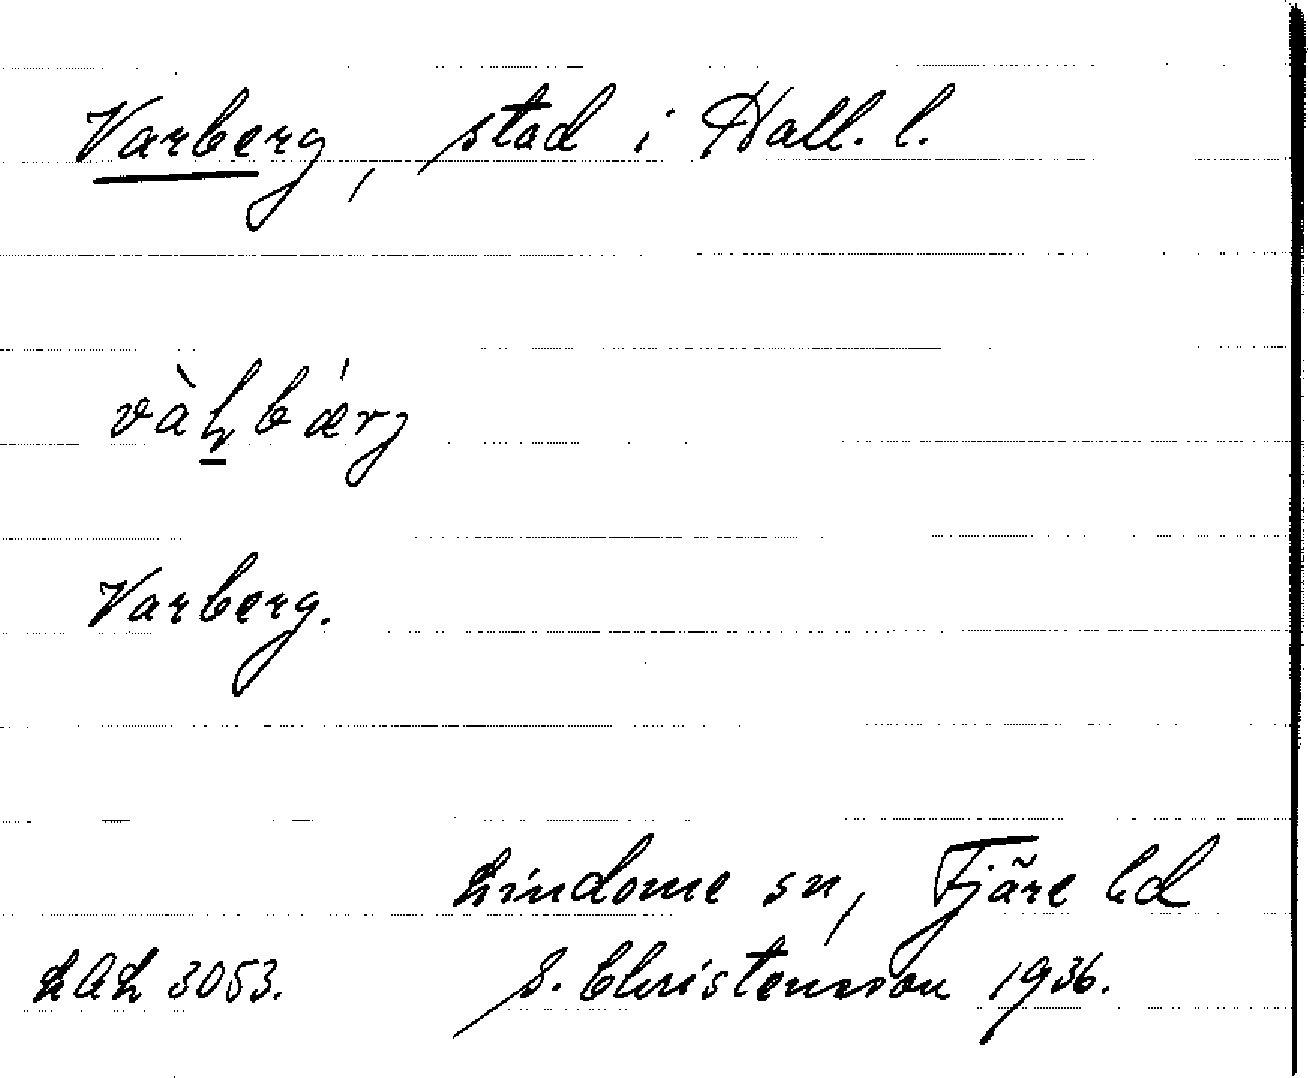 Varberg, stad i Hall. l.
Varberg.
Lindome sn, Fjäre hd
LAL 3053. S. Christensson 1936.